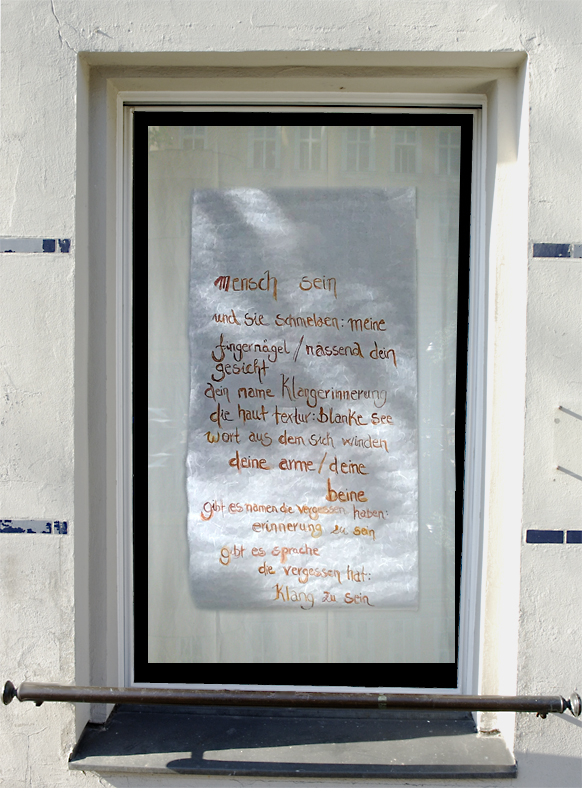 mensch sein
und sie schmelzen: meine
fingernägel / nässend dein
gesicht
dein name Klangerinnerung
die haut textur: blanke see
wort aus dem sich winden
deine arme / deine
beine
gibt es namen die vergessen haben:
erinnerung zu sein
gibt es sprache
die vergessen hat:
klang zu sein